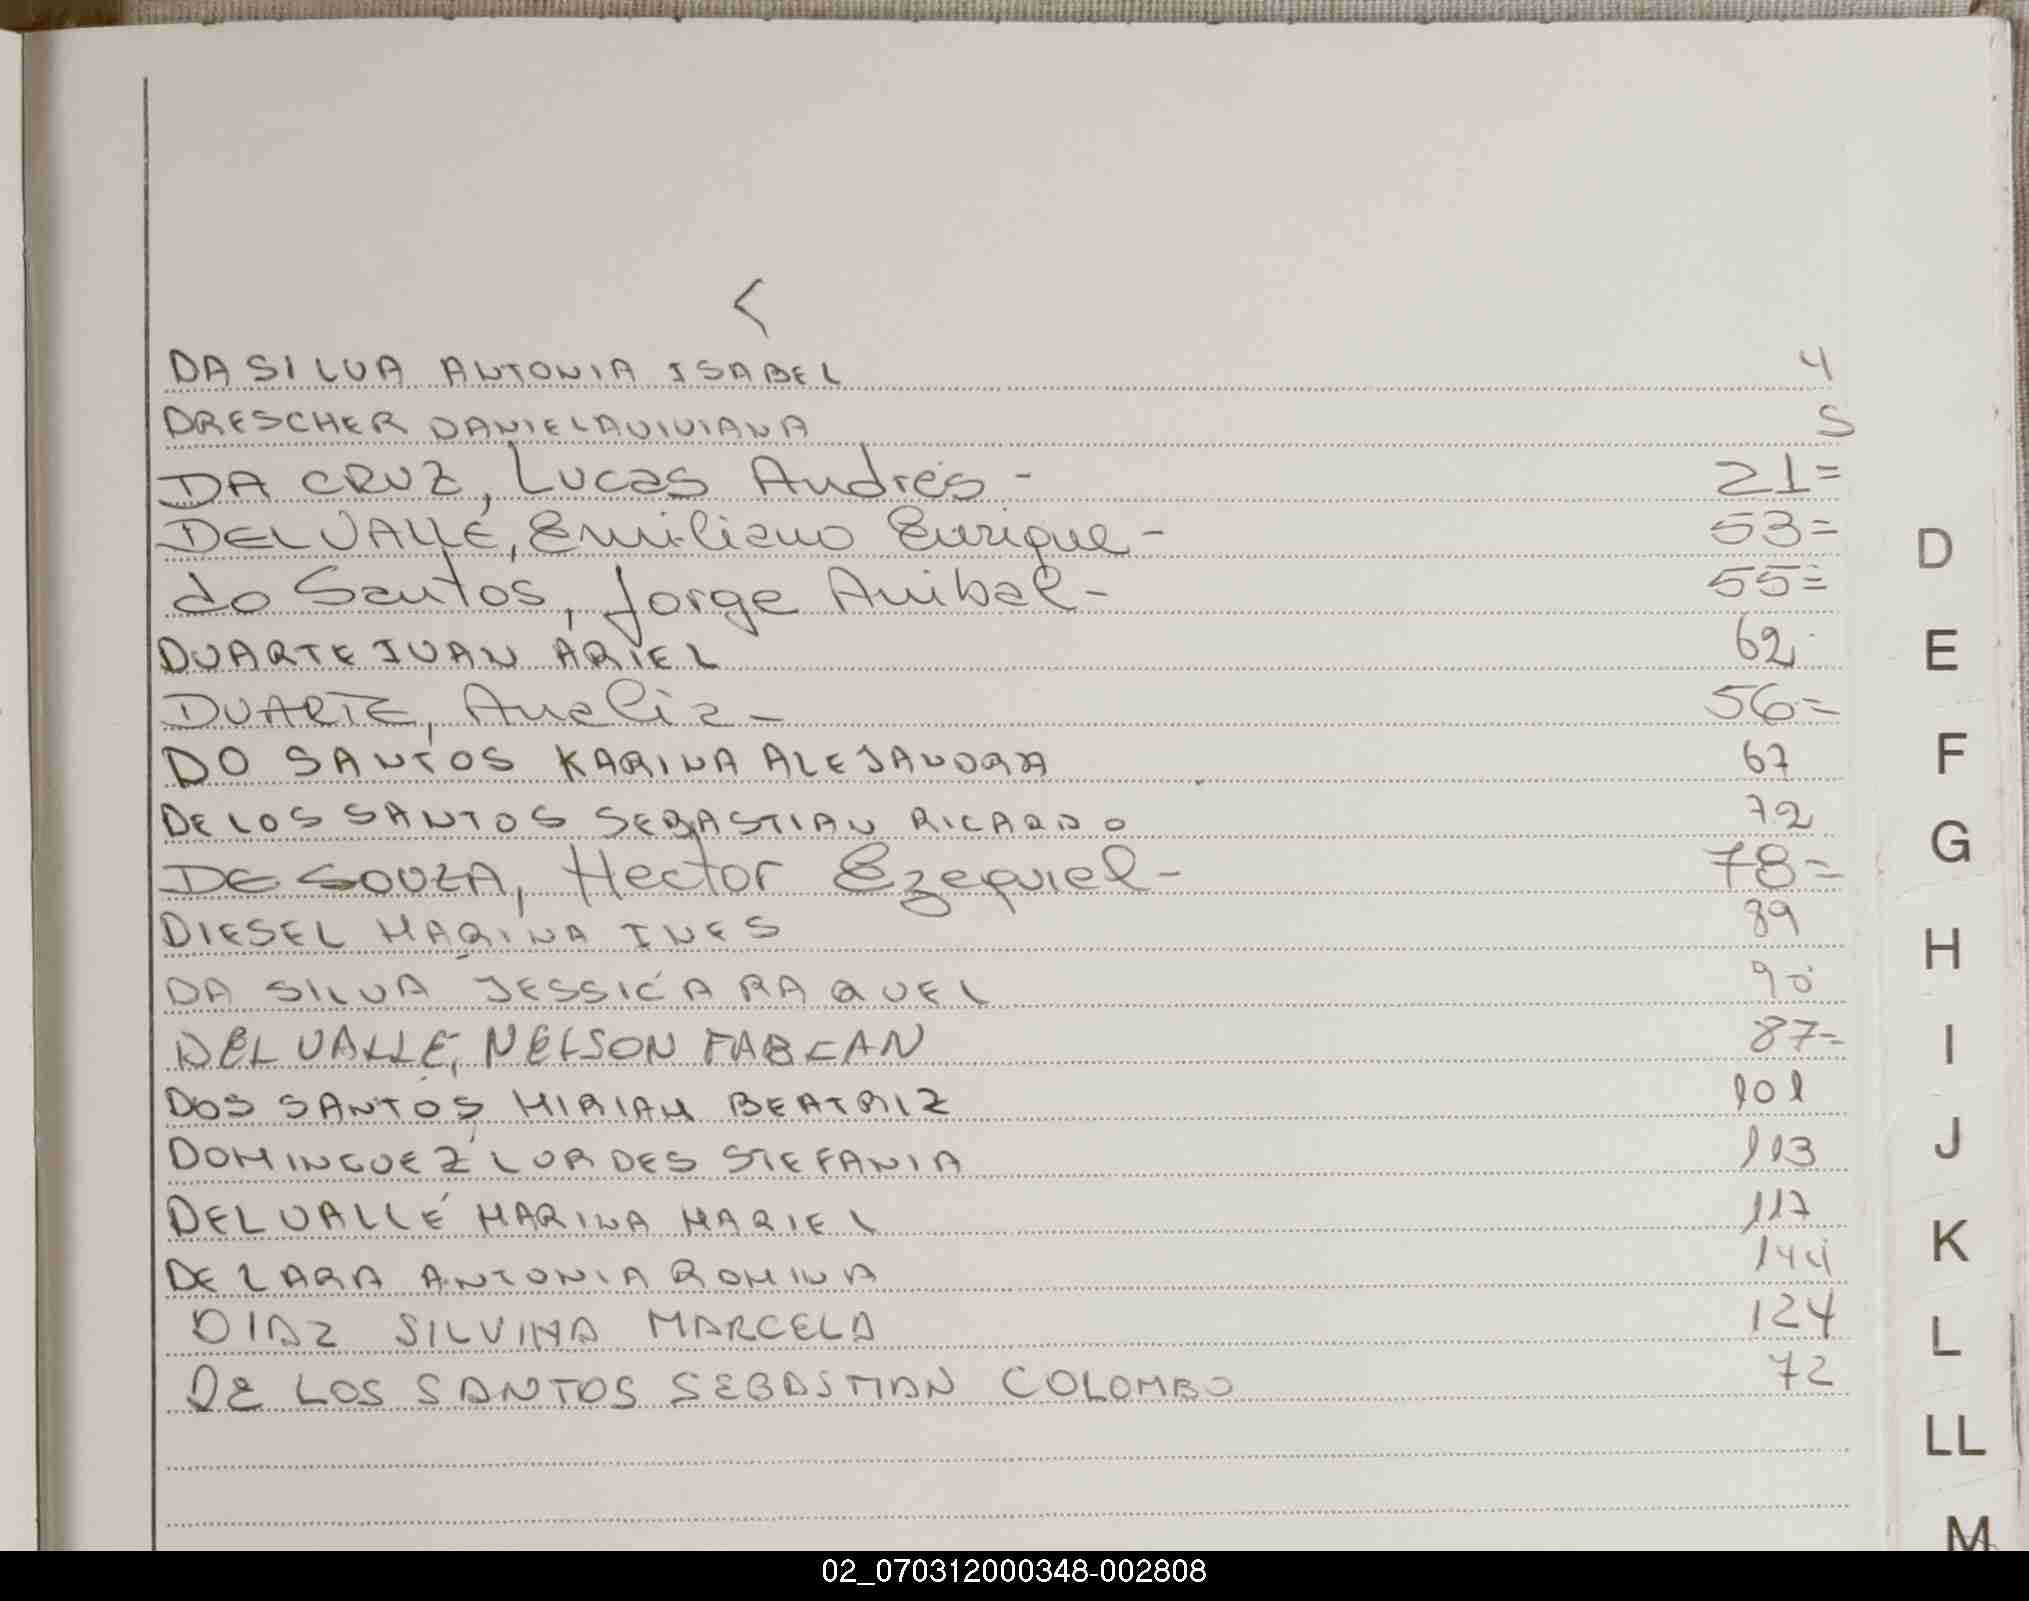 DA SILVA ANTONIA ISABEL 4
DRESCHER DANIELA VIVIANA 5
DA CRUZ, Lucas Andrés - 21=
DEL VALLE, Emiliano Enrique - 53=
do Santos, Jorge Anibal - 55=
DUARTE JUAN ARIEL 62
DUARTE, Analia - 56=
DO SANTOS KARINA ALEJANDRA 67
DE LOS SANTOS SEBASTIAN RICARDO 72
DE SOUZA, Hector Ezequiel - 78=
DIESEL MARINA INES 89
DA SILVA JESSICA RAQUEL 90
DEL VALLE, NELSON FABIAN 87=
DOS SANTOS MIRIAM BEATRIZ 101
DOMINGUEZ LURDES STEFANIA 113
DEL VALLE MARINA MARIEL 117
DE LARA ANTONIA ROMINA 144
DIAZ SILVINA MARCELA 124
DE LOS SANTOS SEBASTIAN COLOMBO 72
D
E
F
G
H
I
J
K
L
LL
M
02_070312000348-002808